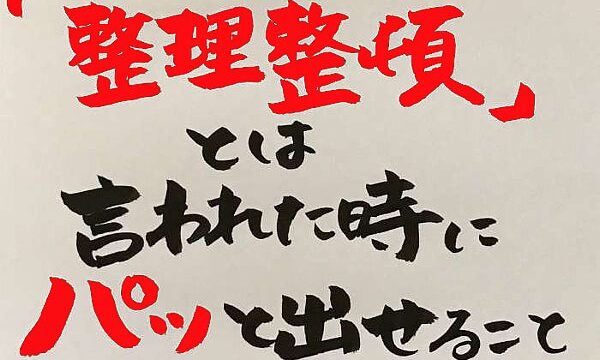 「整理整頓」
とは
言われた時に
パッと出せること